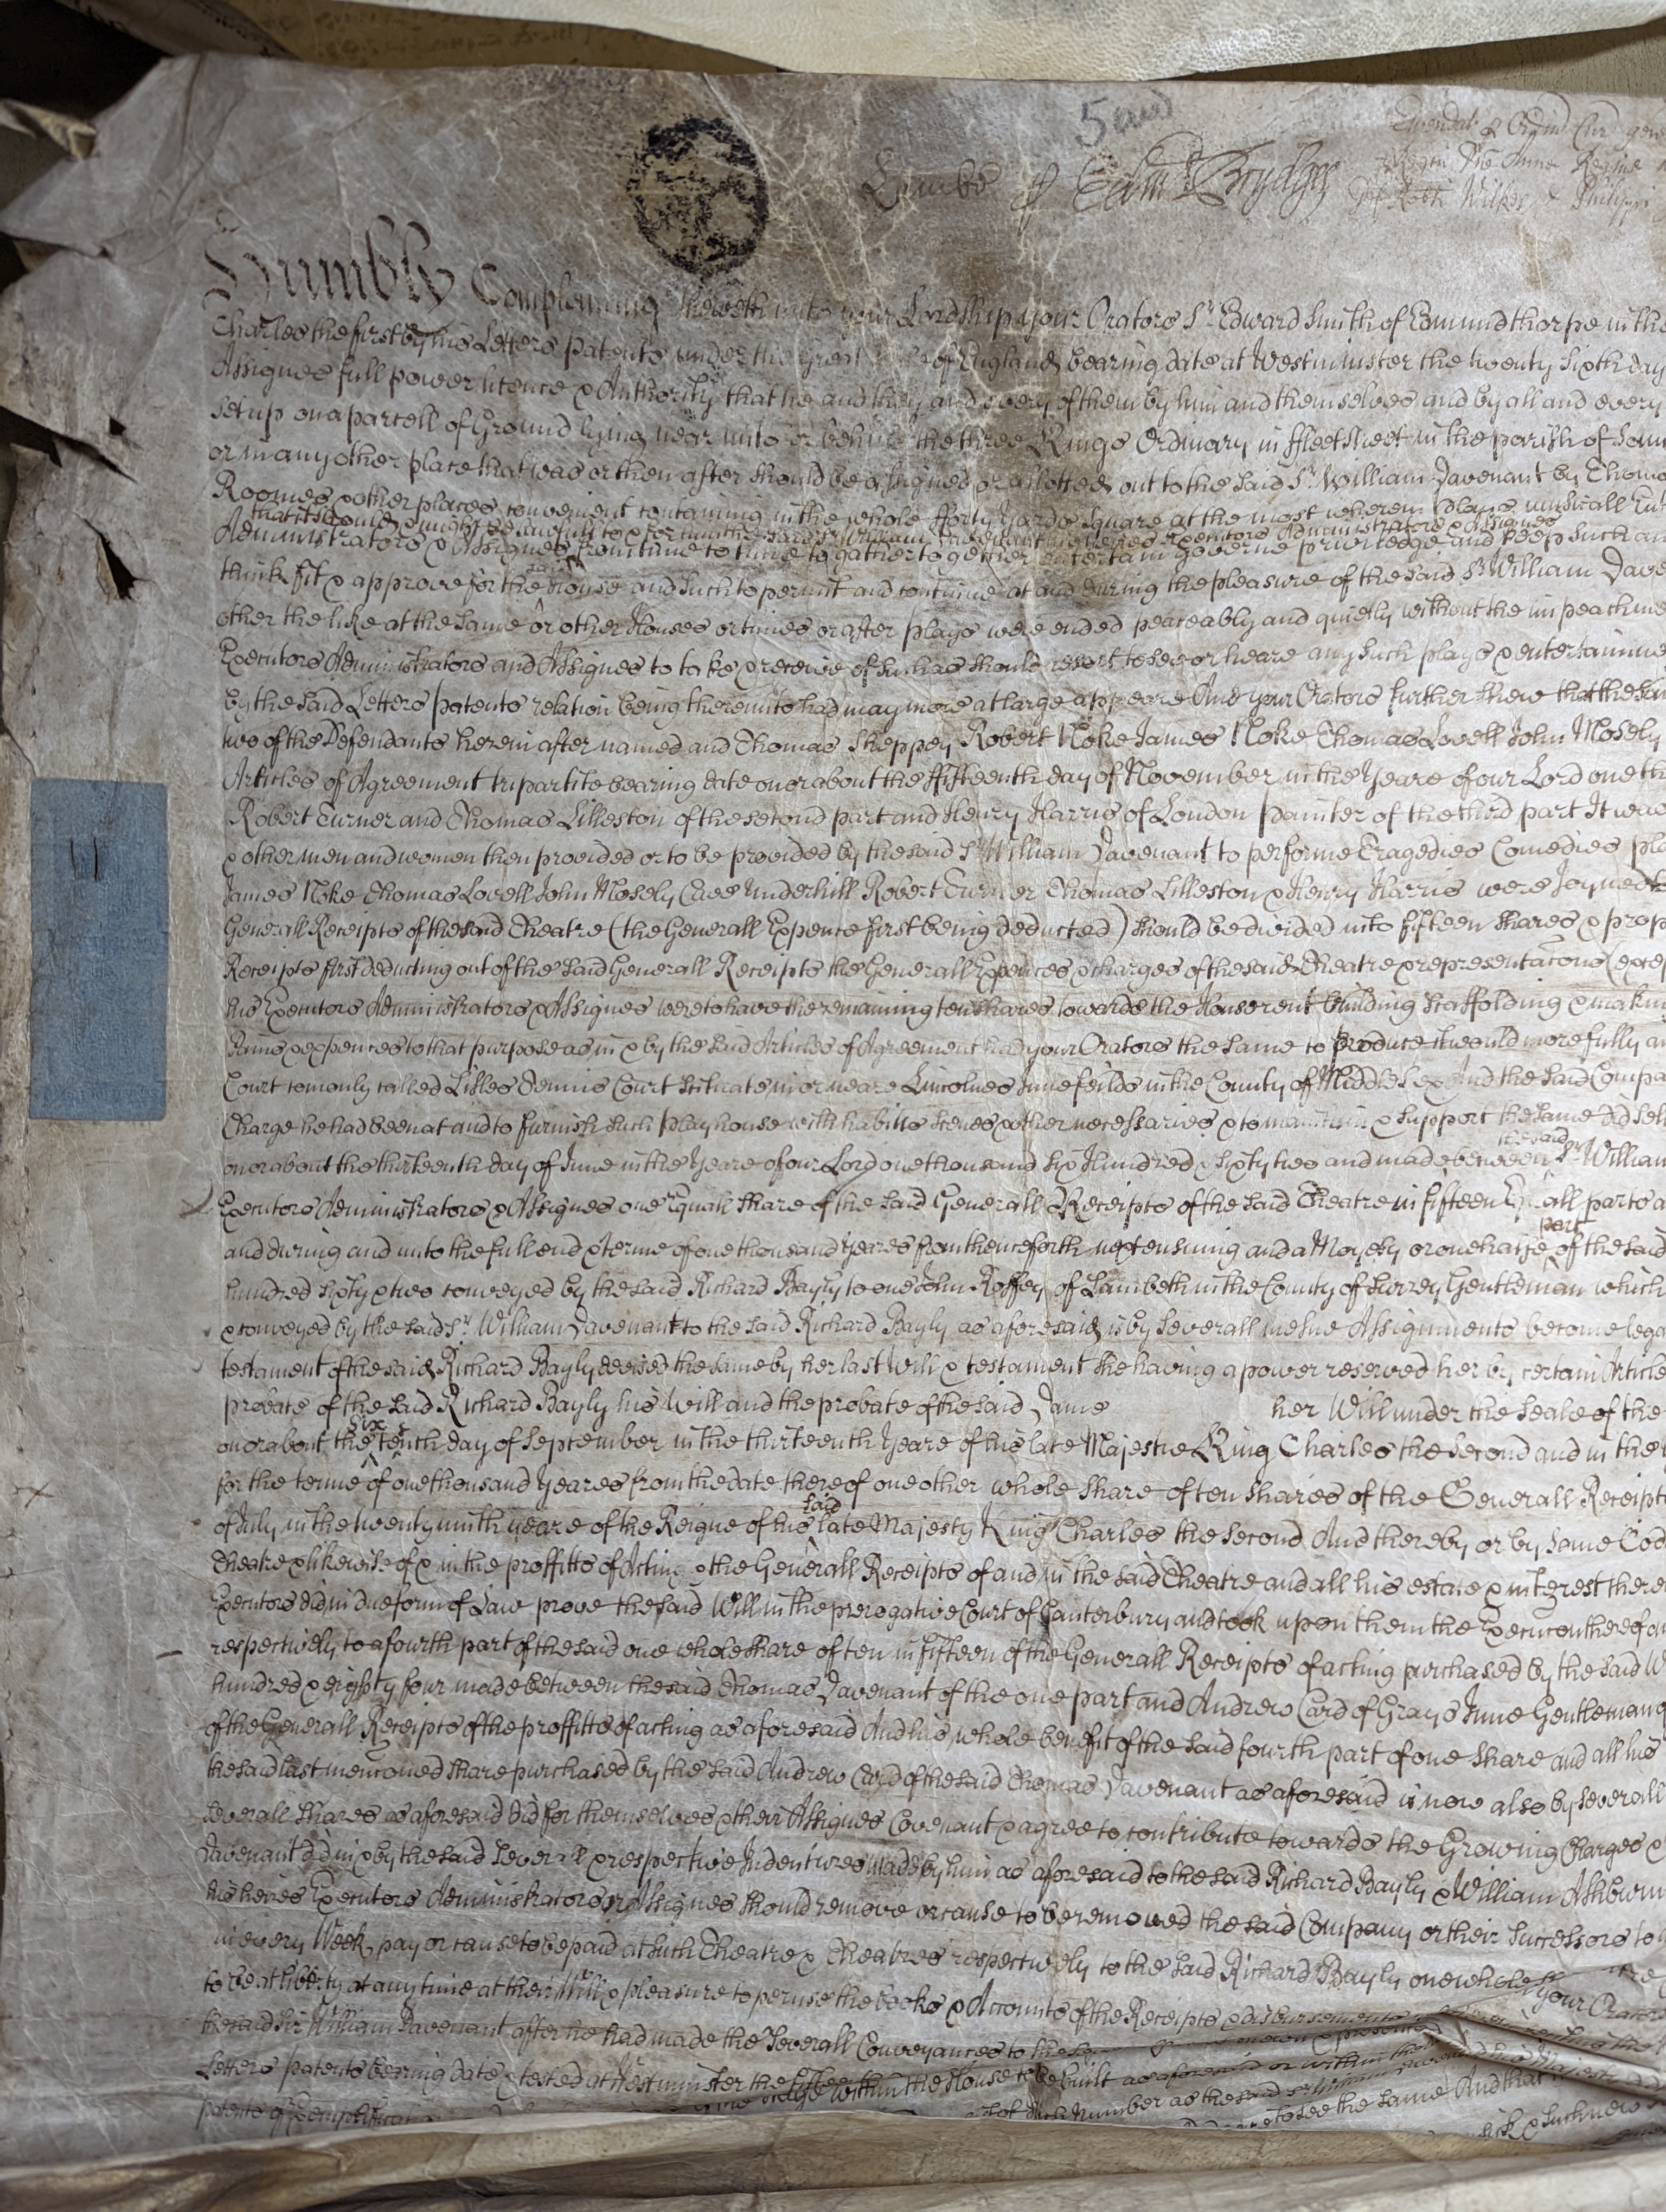 5 aud
Emendat p Ordin Cur
Regni Dne Anne Regine
Robti Wilks & Philippi
Edm Brydges
Humbly Complaining sheweth unto your Lordshipp your Orators Sr Edward Smith of Edmundthorpe in the
Charles the first by his Letters patents under the Great of England bearing date at Westminster the twenty sixth day
Assignes full power licence & Authority that he and they and every of them by him and themselves and by all and every
set up on a parcell of Ground lying near unto or behind the three Kings Ordinary in ffleetstreet in the parish of
or in any other place that was or then after should be assigned or allotted out to the said Sr William Davenant by
Roomes & other places convenient containing in the whole fforty Yards square at the most wherein plays musicall
that it should & might be lawfull to & for him the said Sr William Davenant his heires Executors Administrators & Assignes
Administrators & Assignes from time to time to gather together entertain Governe priviledge and keep such
think fit & approve for the said house and such to permit and continue at and during the pleasure of the said Sr William
other the like at the same or other Houses or times or after plays were ended peaceably and quietly without the
Executors Administrators and Assignes to take & receive of such as should resort to see or heare any such plays &
by the said Letters patents relation being thereunto had may more at large appeare And your Orators further shew that the
two of the Defendants herein after named and Thomas Sheppey Robert Noke James Noke Thomas Lovell John Mosely
Articles of Agreement tripartite bearing date on or about the ffifteenth day of November in the Yeare of our Lord one
Robert Turner and Thomas Lilleston of the second part and Henry Harris of London painter of the third part It was
& other men and women then provided or to be provided by the said Sr William Davenant to performe Tragedies Comedies
James Noke Thomas Lovell John Mosely Cave Underhill Robert Turner Thomas Lilleston & Henry Harris were Joyned
Generall Receipts of the said Theatre (the Generall Expence first being deducted) should be divided into fifteen shares &
Receipts first deducting out of the said Generall Receipts the Generall Expences & charges of the said Theatre & representacons
his Executors Administrators & Assignes were to have the remaining ten shares towards the House rent building scaffolding &
& expences to that purpose as in & by the said Articles of Agreement had your Orators the same to produce it would more fully
Court comonly called Lisles Tennis Court scituate in or neare Lincolnes Inne feilds in the County of Middlesex And the said
Charge he had been at and to furnish such play house with habitts scenes & other necessaries & to maintain & support the same did
on or about the thirteenth day of June in the Yeare of our Lord one thousand six Hundred & sixty two and made between the said Sr William
Executors Administrators & Assignes one Equall share of the said Generall Receipts of the said Theatre in fifteen all parts
and during and unto the full end & terme of one thousand Yeares from thenceforth next ensuing and a Moyety or one halfe part of the said
hundred sixty & two conveyed by the said Richard Bayly to one John Roffey of Lambeth in the County of Surrey Gentleman which
& conveyed by the said Sr William Davenant to the said Richard Bayly as aforesaid is by severall mesne Assignments become
testament of the said Richard Bayly devised the same by her last Will & testament she having a power reserved her by certain
probate of the said Richard Bayly his Will and the probate of the said Dame her Will under the Seale of the
on or about the six tenth day of September in the thirteenth Yeare of his late Majestie King Charles the Second and in the
for the terme of one thousand Yeares from the date thereof one other whole share of ten shares of the Generall
of July in the twenty ninth yeare of the Reigne of his said late Majesty King Charles the Second And thereby or by same
Theatre & likewise of & in the proffitts of Acting & the Generall Receipts of and in the said Theatre and all his estate & interest
Executors did in due form of Law prove the said Will in the prerogative Court of Canterbury and took upon them the Execucon thereof
respectively to a fourth part of the said one whole share of ten in fifteen of the Generall Receipts of acting purchased by the said
hundred & eighty four made between the said Thomas Davenant of the one part and Andrew Card of Grays Inne Gentleman
of the Generall Receipts of the proffitts of acting as aforesaid And his whole benefit of the said fourth part of one share and all his
the said last mencioned share purchased by the said Andrew Card of the said Thomas Davenant as aforesaid is now also by severall
severall shares as aforesaid did for themselves & their Assignes Covenant & agree to contribute towards the Growing Charges
Davenant did in & by the said severall & respective Indentures made by him as aforesaid to the said Richard Bayly & William
his heires Executors Administrators or Assignes should remove or cause to be removed the said Company or their Successors to
in every Week pay or cause to be paid at such Theatre & Theatres respectively to the said Richard Bayly one whole
to be at liberty at any time at their Will & pleasure to peruse the books & Accounts of the Receipts & disbursements your
the said Sir William Davenant after he had made the severall Conveyances to the
Letters patents bearing date & tested at Westminster the
within the House to be built as aforesaid or within
patents
number as the said Sr William
to see the same And that
& such